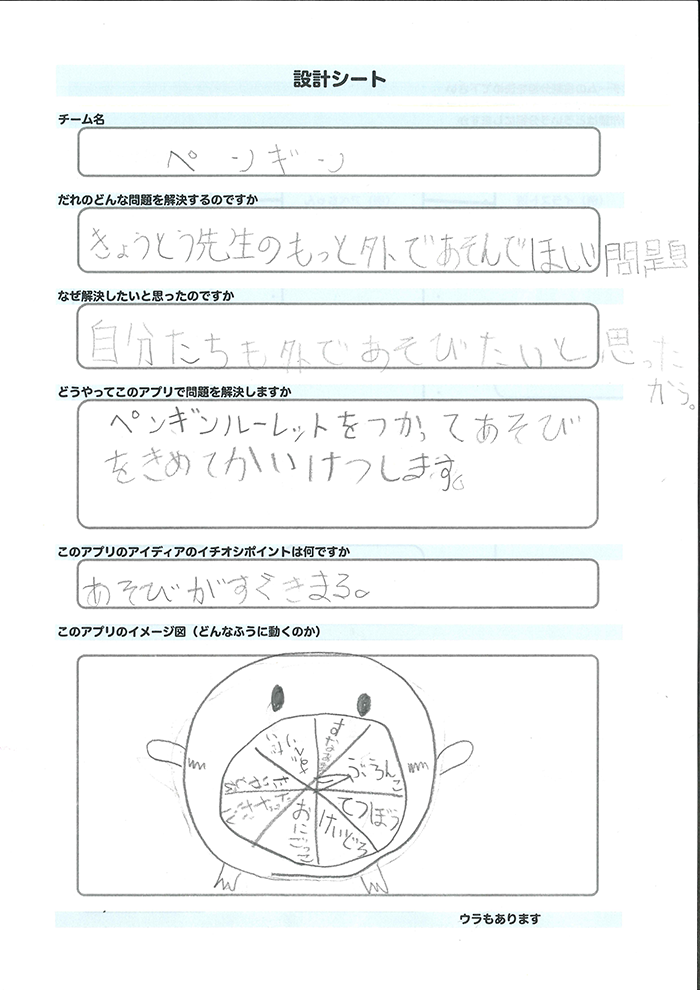 設計シート
チーム名
ペンギン
だれのどんな問題を解決するのですか
きょうとう先生のもっと外であそんでほしい問題
なぜ解決したいと思ったのですか
自分たちも外であそびたいと思った
から。
どうやってこのアプリで問題を解決しますか
ペンギンルーレットをつかってあそび
をきめてかいけつします。
このアプリのアイディアのイチオシポイントは何ですか
あそびがすぐきまる。
このアプリのイメージ図（どんなふうに動くのか）
ぶらんこ
てつぼう
けいどろ
おにごっこ
ウラもあります